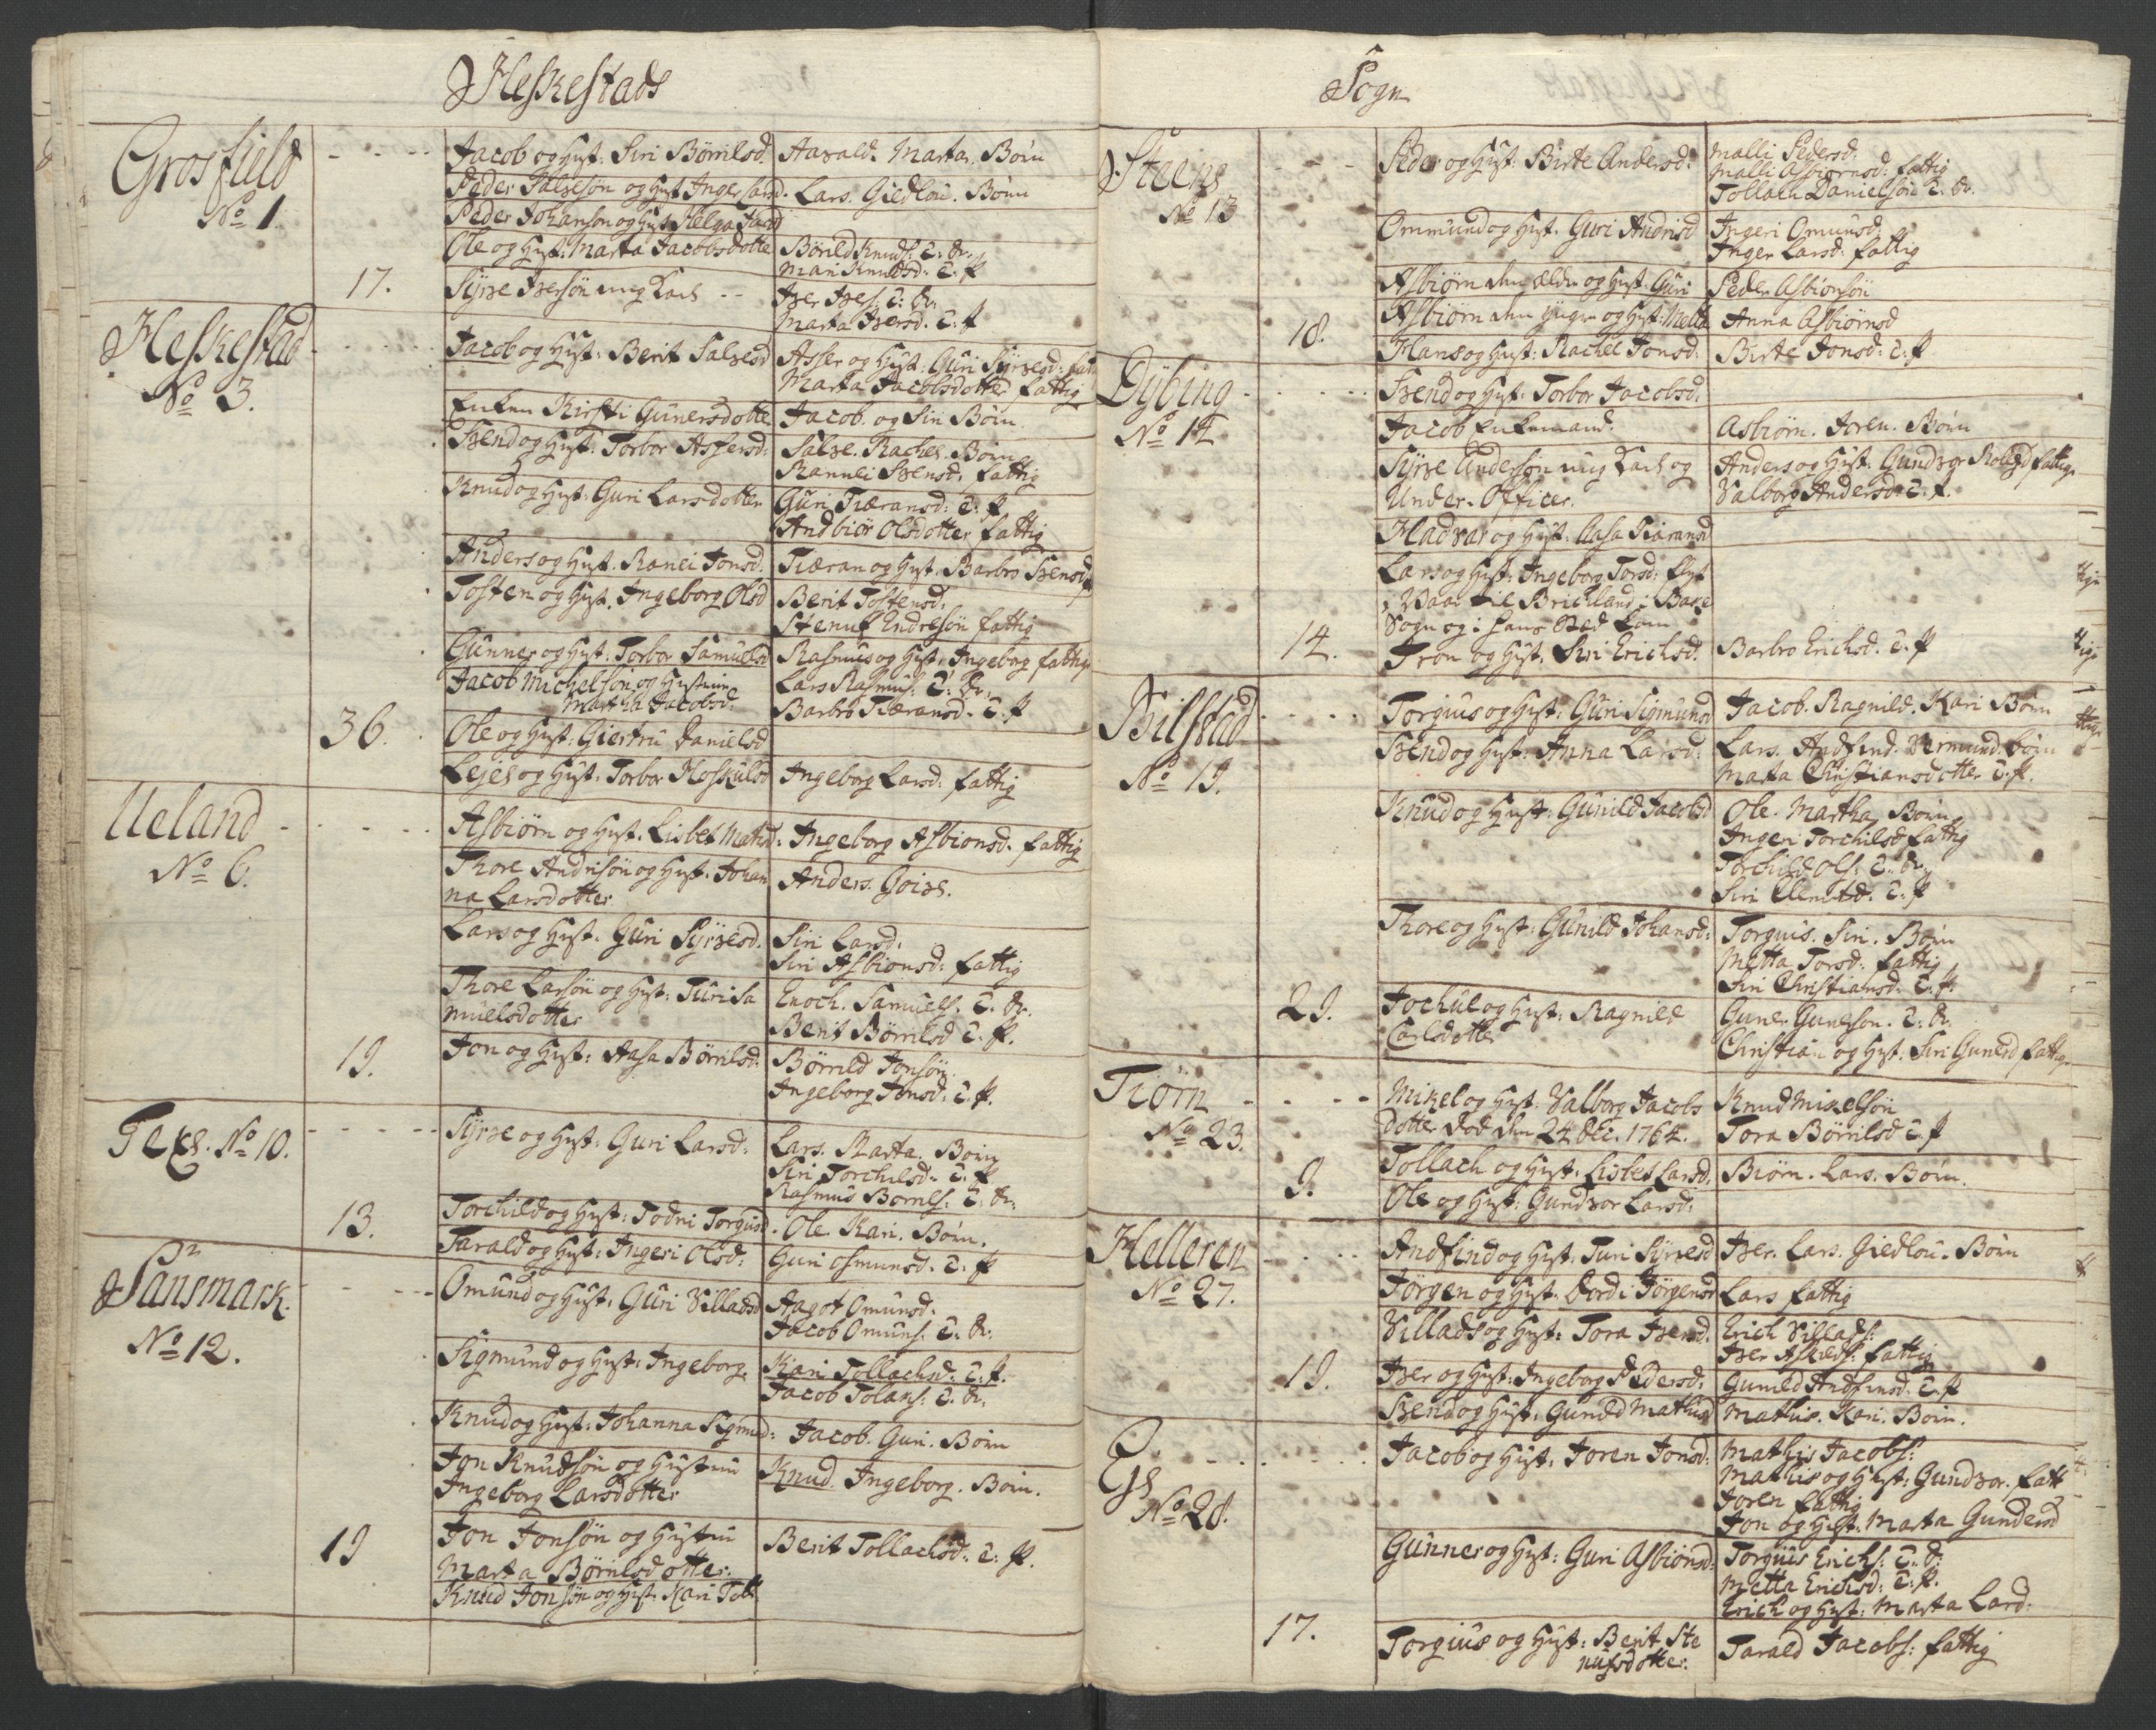 Heskestads
Grosfield
No 1.
17.
Jacob og Hust: Siri Börrilsd.
Aarald. Marta. Börn
Peder Salvesön og Hust Inger Larsd.
Lars. Giedlou. Börn
Peder Johanson og Hust Helga Jacobd
Ole og Hust: Marta Jacobsdotte
Börild Knuds: T: Dr.
Mari Knudsd: T: P
Syrve Iversön ung Karl
Iver Ivers: T: Dr.
Marta Iversd. T: P
Heskestad
No 3.
36.
Jacob og Hust: Berit Salvesd
Asser og Hust. Guri Syrvesd: fatt
Marta Jacobsdotter fattig
Enken Kirsti Gunersdotte
Jacob. og Siri Börn
Svend og Hust: Torbor Assersd:
Salve. Rachel. Börn
Rannei Svensd. fattig
Knud og Hust: Guri Larsdotter
Guri Tiæransd: T: P
Andbiör Olsdotter fattig
Anders og Hust. Ranei Jonsd.
Tiæran og Hust. Barbro Svensd
Tosten og Hust. Ingeborg Olsd
Berit Tostensd:
Stenuf Endresön fattig
Gunner og Hust: Torbor Samuelsd
Rasmus og Hust: Ingeborg fattig
Jacob Michelsön og Hustrue
Martha Jacobsd:
Lars Rasmus: T: Dr.
Barbro Tiæransd. T: P
Ole og Hust: Giertru Danielsd
Lejel og Hust: Torbor Hoskulsd
Ingeborg Larsd: fattig
Ueland
No 6.
19.
Asbiörn og Hust. Lisbet Mathisd:
Ingeborg Asbionsd. fattig
Thore Andrisön og Hust. Johan
na Larsdotter
Anders. Goivel.
Lars og Hust. Guri Syrvesd.
Siri Larsd:
Siri Asbionsd: fattig
Thore Larsön og Hust: Turi Sa
muelsdotter
Enoch. Samuels. T: Dr.
Berit Börrilsd T. P.
Jon og Hust: Aasa Börrilsd:
Börrild Jonsön
Ingeborg Jonsd: T. P.
Texel. No 10.
13.
Syrve og Hust: Guri Larsd:
Lars. Marta. Börn
Siri Torchilsd: T. P
Rasmus Borrils: T: Dr.
Torchild og Hust: Todni Torgusd.
Ole. Kari. Börn.
Tarald og Hust: Ingeri Olsd:
Guri Osmunsd. T: P
Sansmark.
No 12.
19
Omund og Hust: Guri Villadsd
Aagot Omunsd.
Jacob Omuns: T: Dr.
Sigmund og Hust: Ingeborg.
Kari Tollachsd. T: P.
Jacob Tolans: T. Dr.
Knud og Hust: Johanna Sigmud:
Jacob. Guri. Börn
Jon Knudsön og Hustrue
Ingeborg Larsdotter
Knud. Ingeborg. Börn.
Jon Jonsön og Hustru
Marta Börrilsdotter.
Berit Tollachsd: T: P.
Knud Jonsön og Hust. Kari Toll
Sogn
Steens
No 13
18.
Peder og Hust: Birte Andersd:
Malli Pedersd:
Malli Asbiornsd: fattig
Tollach Danielsön T: Dr.
Ommund og Hust. Guri Andrisd
Ingeri Omunsd:
Inger Larsd: fattig
Asbiörn den ældre og Hust: Guri
Peder Asbionsön
Asbiörn den yngre og Hust: Malle
Anna Asbiörnsd
Hans og Hust: Rachel Jonsd:
Birte Jonsd: T: P
Dybing
No 14
14.
Svend og Hust: Torbor Jacobsd:
Jacob Enkemand.
Asbiörn. Joren. Börn
Syrve Andersön ung Karl og
Under-Officer.
Anders og Hust: Gundvor Rolfsd fattig
Valborg Andersd: T. P.
Hadvar og Hust: Aasa Tiæransd
Lars og Hust: Ingeborg Torsd: flyt
i Vaar til Birchland i Bake
Sogn og i hans Sted kom
Tron og Hust: Siri Erichsd.
Barbro Erichsd. T. P
Bilstad
No 19.
29.
Torgius og Hust: Guri Sigmunsd
Jacob. Ragnild. Kari Börn
Svend og Hust: Anna Larsd:
Lars. Andfind. Vermund. börn
Marta Christiansdotter T. P.
Knud og Hust: Gunild Jacobsd
Ole. Martha Börn
Ingeri Torchilsd fattig
Torchild Ols: T: Dr.
Siri Clemedsd. T: P
Thore og Hust: Gunild Johansd:
Torguis. Siri. Börn
Metta Torsd: fattig
Siri Christiansd: T. P.
Jochul og Hust: Ragnild
Carlsdotter
Guner Gunerson. T: Dr.
Christian og Hust: Siri Gunersd fattig
Tiörn
No 23.
9.
Mikel og Hust: Valborg Jacobs
dotter död den 24 dec. 1764.
Knud Mikelsön
Tora Börrilsd T: P
Tollach og Hust: Lisbet Larsd.
Biörn. Lars. Börn.
Ole og Hust: Gundvor Larsd:
Helleren
No 27.
19.
Andfind og Hust: Turi Syrvesd
Iver. Lars. Giedlou. Börn
Jörgen og Hust: Dordi Jörgensd
Lars fattig
Villads og Hust: Tora Iversd.
Erich Villads:
Iver Askilds: fattig
Iver og Hust: Ingeborg Pedersd:
Gunild Andfinsd: T. P
Svend og Hust: Gunild Mathisd
Mathis. Kari. Börn.
Eje
No 28.
17.
Jacob og Hust: Joren Jonsd:
Mathis Jacobs:
Mathis og Hust: Gundvor. fatt
Joren fattig
Jon og Hust: Marta Gundersd
Gunner og Hust: Guri Asbiönsd:
Torguis Erichs: T: D:
Metta Erichsd: T: P.
Erich og Hust: Marta Larsd.
Torgius og Hust: Berit Ste
nufsdotter.
Tarald Jacobs: fattig